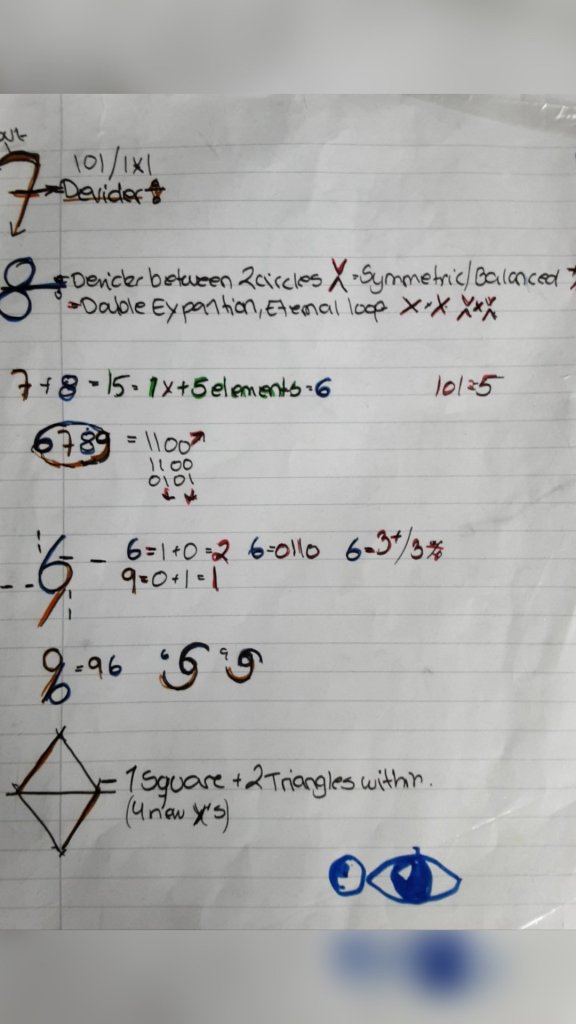 out
101/1x1
7 Devider
8 = Devider between 2 circles X = Symmetric/Balanced
= Double Expantion, Eternal loop X - X
7 + 8 = 15 = 1x + 5 elements = 6 101=5
6789 = 1100
1100
0101
6 = 1+0 = 2 6=0110 6=3+/3
9=0+1=1
= 96 6 9
= 1 Square + 2 Triangles within.
(4 new X's)